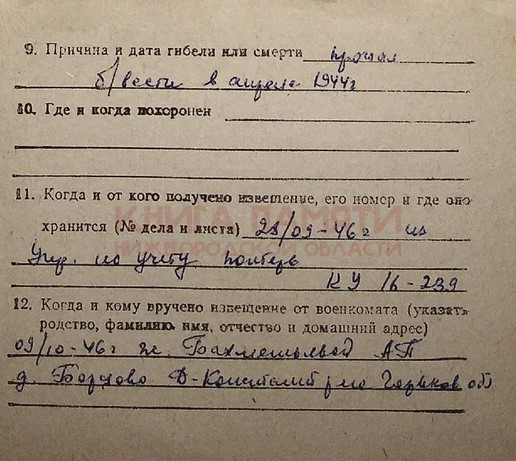 9. Причина и дата гибели или смерти пропал
б/вести в апреле 1944г
10. Где и когда похоронен
11. Когда и от кого получено извещение, его номер и где оно
хранится (№ дела и листа) 28/09-46г из
КНИГА ПАМЯТИ
НИЖЕГОРОДСКОЙ ОБЛАСТИ
Упр. по учету потерь
КУ 16-239
12. Когда и кому вручено извещение от военкомата (указать
родство, фамилию имя, отчество и домашний адрес)
09/10-46г ж. Бахметьевой АП
д. Борцово Д-Констант р-на Горьков обл